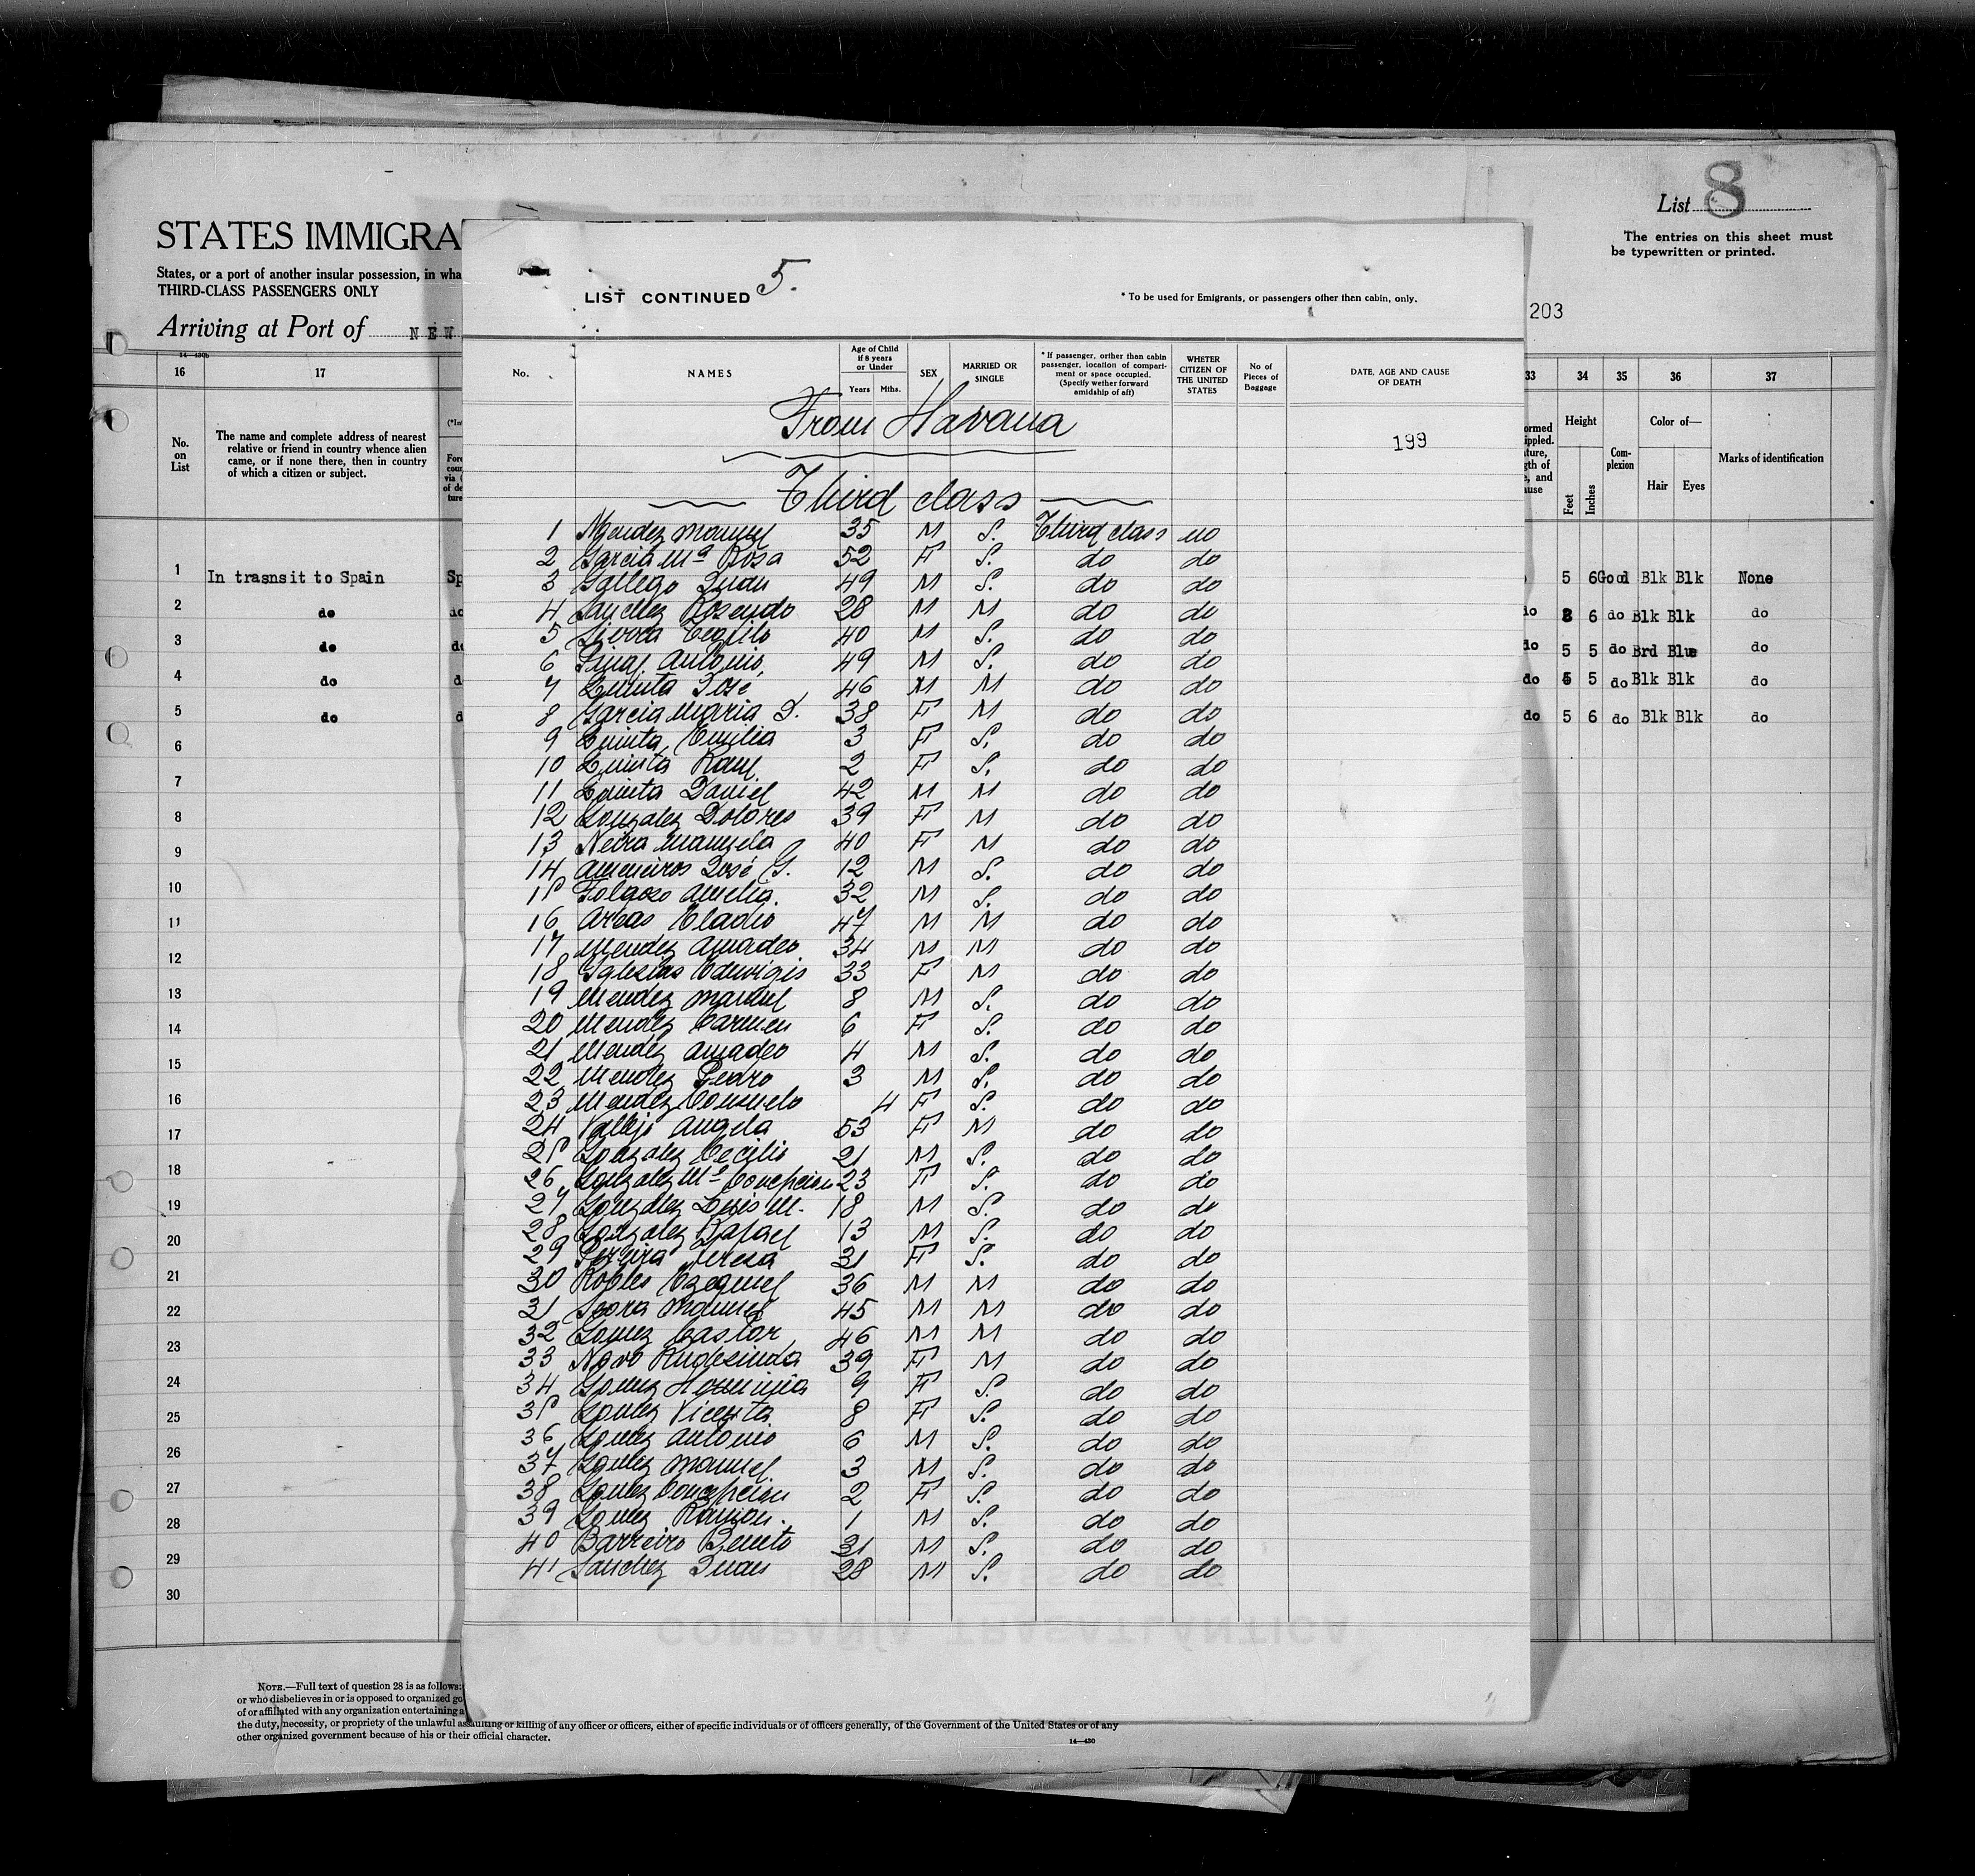 List 8
The entries on this sheet must
be typewritten or printed.
STATES IMMIGRA
States, or a port of another insular possession, in wha
THIRD-CLASS PASSENGERS ONLY
Arriving at Port of NEW
203
14-430b
16 17
No.
on
List
The name and complete address of nearest
relative or friend in country whence alien
came, or if none there, then in country
of which a citizen or subject.
1 In trasnsit to Spain Sp
2 do do
3 do do
4 do d
5 do d
6
7
8
9
10
11
12
13
14
15
16
17
18
19
20
21
22
23
24
25
26
27
28
29
30
LIST CONTINUED 5.
* To be used for Emigrants, or passengers other then cabin, only.
No. NAMES Age of Child if 8 years or Under Years Mths. SEX MARRIED OR SINGLE * If passenger, orther than cabin passenger, location of compartiment or space occupied. (Specify wether forward amidship of aft) WHETER CITIZEN OF THE UNITED STATES No of Pieces of Baggage DATE, AGE AND CAUSE OF DEATH
From Havana
199
Third class
1 Mendez Manuel 35 M S. Third class no
2 Garcia Mª Rosa 52 F S. do do
3 Gallego Juan 49 M S. do do
4 Sanchez Rosendo 28 M M do do
5 Sierra 40 M S. do do
6 Antonio 49 M S. do do
7 Quinta José 46 M M do do
8 Garcia Maria J. 38 F M do do
9 Quinta Emilia 3 F S. do do
10 Quinta Raul 2 F S. do do
11 Quinta Daniel 42 M M do do
12 Gonzalez Dolores 39 F M do do
13 Neira Manuela 40 F M do do
14 Ameneiros José G. 12 M S. do do
15 Folgoso Amelia. 32 M S. do do
16 Areas Eladio 47 M M do do
17 Mendez Amadeo 34 M M do do
18 Iglesias Eduvigis 33 F M do do
19 Mendez Manuel 8 M S. do do
20 Mendez Carmen 6 F S. do do
21 Mendez Amadeo 4 M S. do do
22 Mendez Pedro 3 M S. do do
23 Mendez Consuelo 4 F S. do do
24 Vallejo Angela 53 F M do do
25 Gonzalez Cecilio 21 M S. do do
26 Gonzalez Mª Concepcion 23 F S. do do
27 Gonzalez Luis M. 18 M S. do do
28 Gonzalez Rafael 13 M S. do do
29 Pereira Teresa 31 F S. do do
30 Robles Ezequiel 36 M M do do
31 Manuel 45 M M do do
32 Gomez Castor 46 M M do do
33 Novo Rudesinda 39 F M do do
34 Gomez Herminia 9 F S. do do
35 Gomez Vicenta 8 F S. do do
36 Gomez Antonio 6 M S. do do
37 Gomez Manuel 3 M S. do do
38 Gomez Concepcion 2 F S. do do
39 Gomez Ramon. 1 M S. do do
40 Barreiro Benito 31 M S. do do
41 Sanchez Juan 28 M S. do do
33 34 35 36 37
Height Feet Inches
Complexion
Color of— Hair Eyes
Marks of identification
5 6 Good Blk Blk None
do 6 do Blk Blk do
do 5 5 do Brd Blue do
do 5 5 do Blk Blk do
do 5 6 do Blk Blk do
NOTE.—Full text of question 28 is as follows:
or who disbelieves in or is opposed to organized go
of or affiliated with any organization entertaining a
the duty, necessity, or propriety of the unlawful assaulting or killing of any officer or officers, either of specific individuals or of officers generally, of the Government of the United States or of any
other organized government because of his or their official character.
14—430